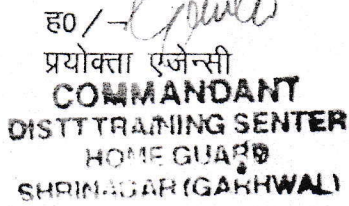 ह0/-
प्रयोक्ता एजेन्सी
COMMANDANT
DISTT TRAINING SENTER
HOME GUARD
SHRINAGAR (GARHWAL)